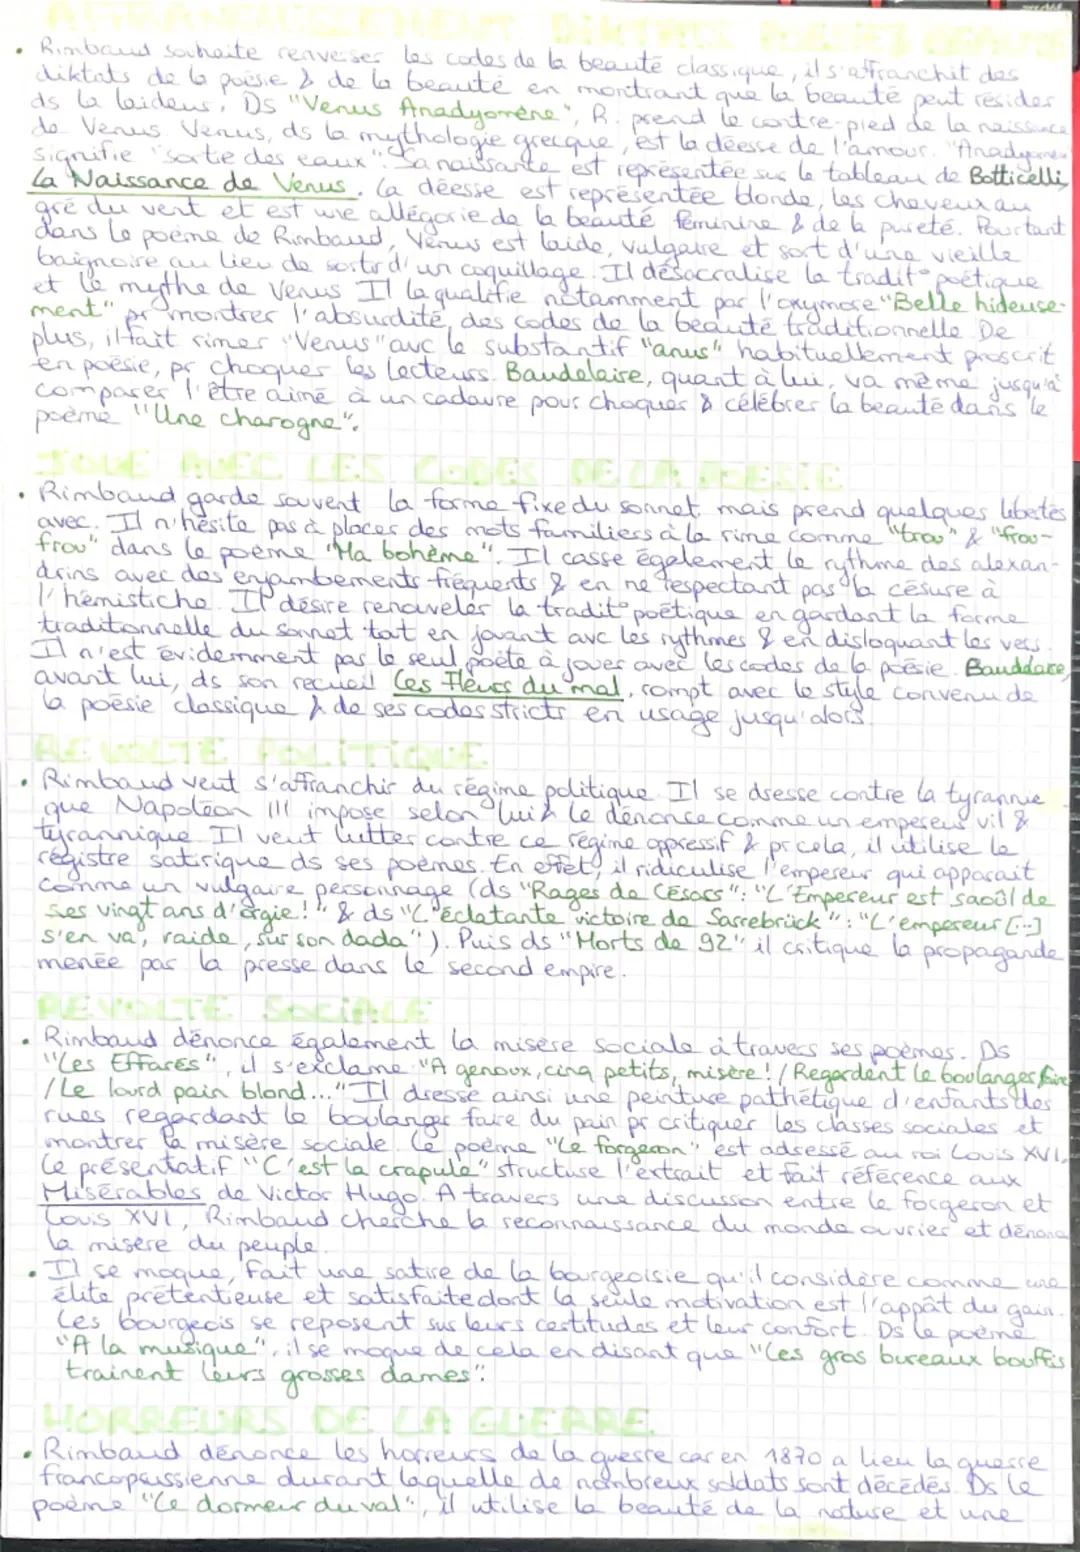 AFFRANCHISSEMENT DIKTATS POÉSIE & BEAUTÉ
• Rimbaud souhaite renverser les codes de la beauté classique, il s'affranchit des
diktats de la poésie & de la beauté en montrant que la beauté peut résider
ds la laideur. Ds "Venus Anadyomène", R. prend le contre-pied de la naissance
de Venus. Venus, ds la mythologie grecque, est la déesse de l'amour. "Anadyomène
signifie "sortie des eaux". Sa naissante est représentée sur le tableau de Botticelli,
La Naissance de Venus. La déesse est représentée blonde, les cheveux au
gré du vent et est une allégorie de la beauté féminine & de la pureté. Pourtant
dans le poème de Rimbaud, Vénus est laide, vulgaire et sort d'une vieille
baignoire au lieu de sortir d'un coquillage. Il désacralise la tradit° poétique
et le mythe de Venus. Il la qualifie notamment par l'oxymore "Belle hideuse-
ment" pr montrer l'absurdité des codes de la beauté traditionnelle. De
plus, il fait rimer "Venus" avc le substantif "anus" habituellement proscrit
en poésie, pr choquer les lecteurs. Baudelaire, quant à lui, va même jusqu'à
comparer l'être aimé à un cadavre pour choquer & célébrer la beauté dans le
poème "Une charogne".
JOUE AVEC LES CODES DE LA POESIE
• Rimbaud garde souvent la forme fixe du sonnet mais prend quelques libertés
avec. Il n'hésite pas à placer des mots familiers à la rime comme "trou" & "frou-
frou" dans le poème "Ma bohème". Il casse également le rythme des alexan-
drins avec des enjambements fréquents & en ne respectant pas la césure à
l'hémistiche. Il désire renouveler la tradit° poétique en gardant la forme
traditionnelle du sonnet tout en jouant avc les rythmes & en disloquant les vers.
Il n'est évidemment pas le seul poète à jouer avec les codes de la poésie. Bauddaire,
avant lui, ds son recueil Les Fleurs du mal, rompt avec le style convenu de
la poésie classique & de ses codes stricts en usage jusqu'alors.
REVOLTE POLITIQUE
• Rimbaud veut s'affranchir du régime politique. Il se dresse contre la tyrannie
que Napoléon III impose selon lui & le dénonce comme un empereur vil &
tyrannique. Il veut lutter contre ce régime oppressif & pr cela, il utilise le
registre satirique ds ses poèmes. En effet, il ridiculise l'empereur qui apparait
comme un vulgaire personnage (ds "Rages de Césars": "L'Empereur est saoûl de
ses vingt ans d'orgie!" & ds "L'éclatante victoire de Sarrebrück": "L'empereur [...]
s'en va, raide, sur son dada"). Puis ds "Morts de 92" il critique la propagande
menée par la presse dans le second empire.
REVOLTE SOCIALE
• Rimbaud dénonce également la misère sociale à travers ses poèmes. Ds
"Les Effarés", il s'exclame "A genoux, cinq petits, misère! / Regardent le boulanger faire
/ Le lourd pain blond..." Il dresse ainsi une peinture pathétique d'enfants des
rues regardant le boulanger faire du pain pr critiquer les classes sociales et
montrer la misère sociale. Le poème "Le forgeron" est adressé au roi Louis XVI,
Le présentatif "C'est la crapule" structure l'extrait et fait référence aux
Misérables de Victor Hugo. A travers une discussion entre le forgeron et
Louis XVI, Rimbaud cherche la reconnaissance du monde ouvrier et dénonce
la misère du peuple.
• Il se moque, fait une satire de la bourgeoisie qu'il considère comme une
élite prétentieuse et satisfaite dont la seule motivation est l'appât du gain.
Les bourgeois se reposent sur leurs certitudes et leur confort. Ds le poème
"A la musique", il se moque de cela en disant que "Les gros bureaux bouffis
trainent leurs grosses dames".
HORREURS DE LA GUERRE
• Rimbaud dénonce les horreurs de la guerre car en 1870 a lieu la guerre
francoprussienne durant laquelle de nombreux soldats sont décédés. Ds le
poème "Le dormeur du val", il utilise la beauté de la nature et une